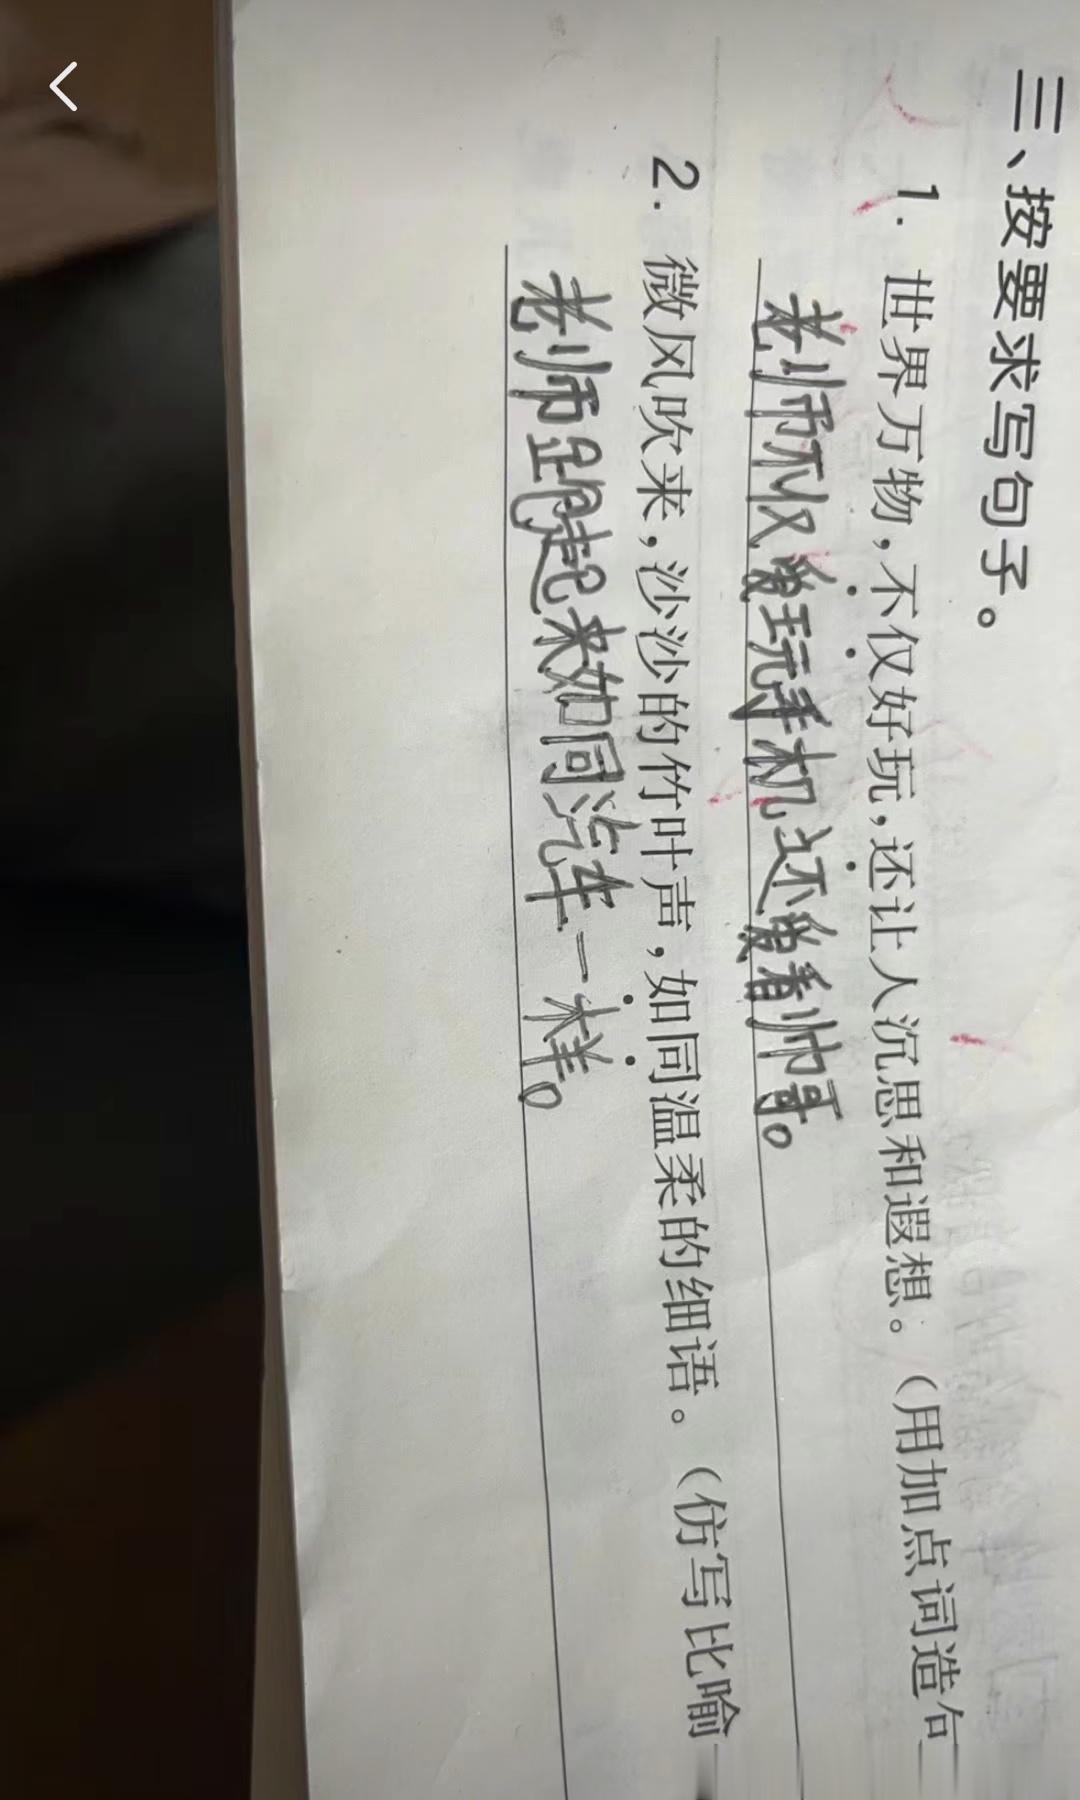 三、按要求写句子。
1. 世界万物,不仅好玩,还让人沉思和遐想。(用加点词造句
老师不仅爱玩手机还爱看帅哥。
2. 微风吹来,沙沙的竹叶声,如同温柔的细语。(仿写比喻
老师跑起来如同汽车一样。